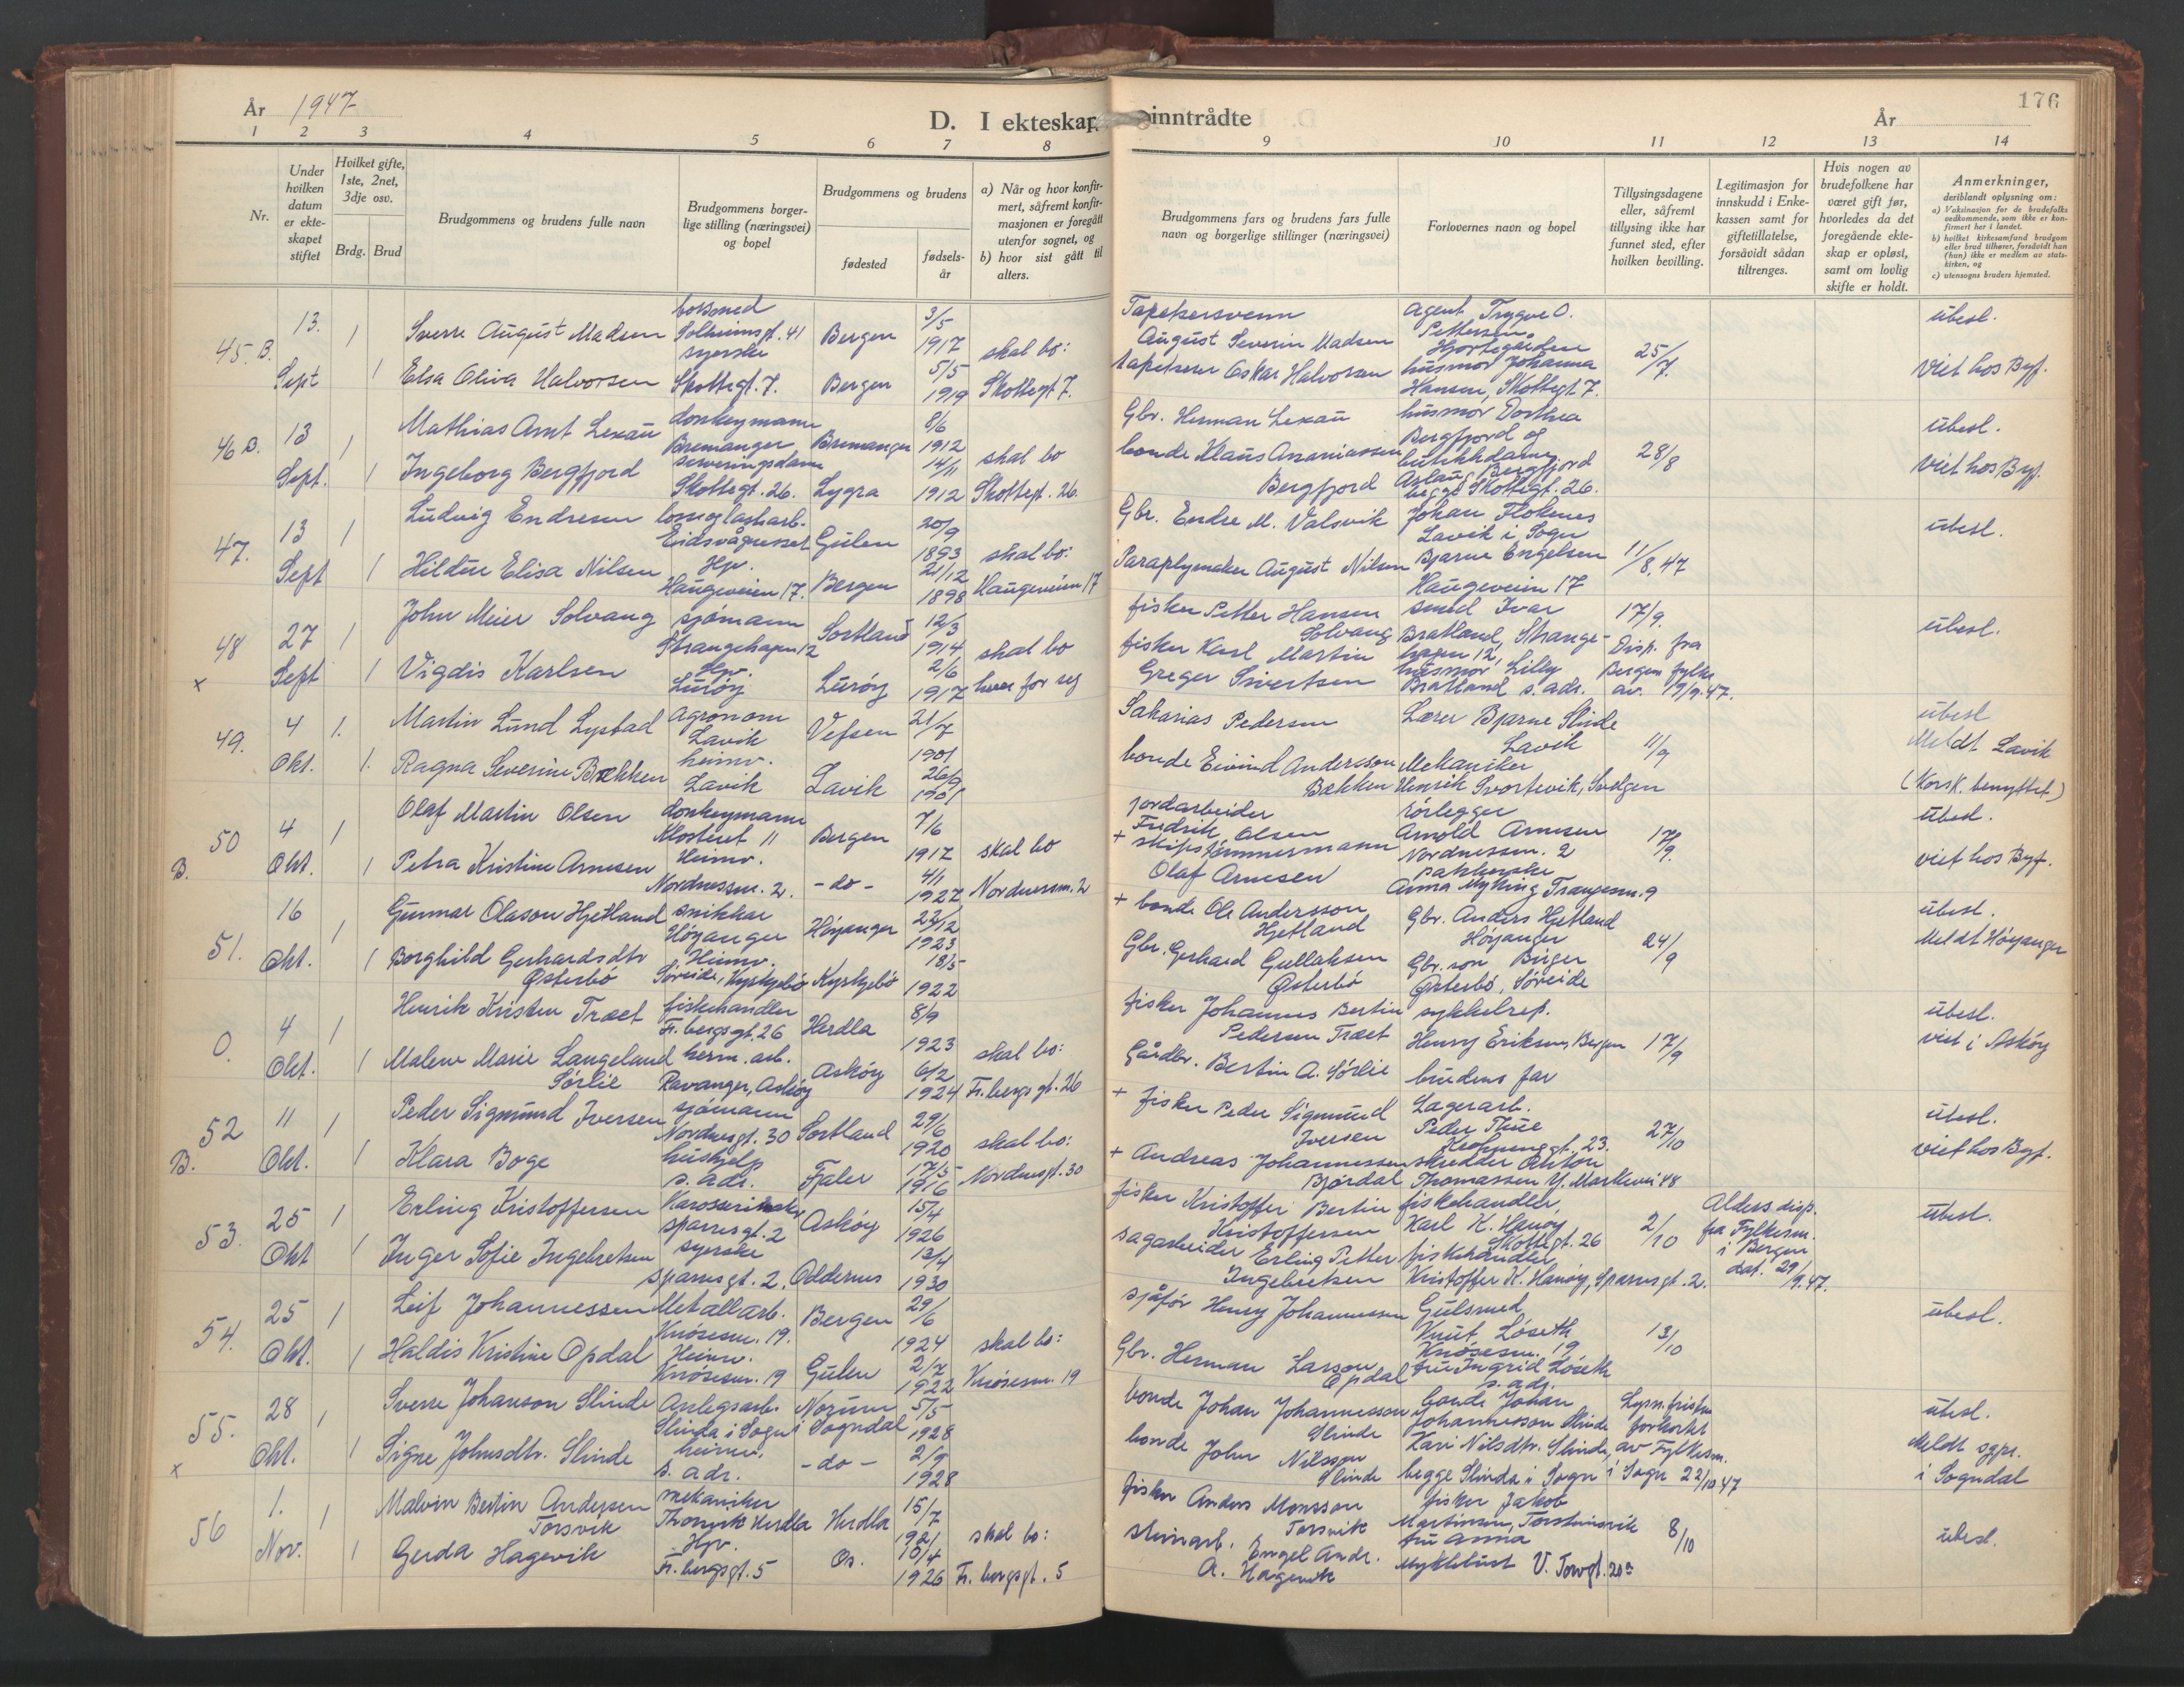 År 1947
D. I ekteskap inntrådte
År
176
1 2 3 4 5 6 7 8 9 10 11 12 13 14
Nr.
Under hvilken datum er ekteskapet stiftet
Hvilket gifte, 1ste, 2net, 3dje osv.
Brdg. Brud
Brudgommens og brudens fulle navn
Brudgommens borgerlige stilling (næringsvei) og bopel
Brudgommens og brudens
fødested
fødselsår
a) Når og hvor konfirmert, såfremt konfirmasjonen er foregått utenfor sognet, og
b) hvor sist gått til alters.
Brudgommens fars og brudens fars fulle navn og borgerlige stillinger (næringsvei)
Forlovernes navn og bopel
Tillysingsdagene eller, såfremt tillysing ikke har funnet sted, efter hvilken bevilling.
Legitimasjon for innskudd i Enkekassen samt for giftetillatelse, forsåvidt sådan tiltrenges.
Hvis nogen av brudefolkene har været gift før, hvorledes da det foregående ekteskap er opløst, samt om lovlig skifte er holdt.
Anmerkninger, deriblandt oplysning om:
a) Vaksinasjon for de brudefolks vedkommende, som ikke er konfirmert her i landet.
b) hvilket kirkesamfund brudgom eller brud tilhører, forsåvidt han (hun) ikke er medlem av statskirken, og
c) utensogns bruders hjemsted.
45. B. 13. Sept 1 1
Sverre August Madsen
Solheimsgt. 41 Bergen 3/5 1917
Elsa Oliva Halvorsen
syerske Skottegt. 7. Bergen 5/5 1919
skal bo: Skottegt 7.
Tapetsersvenn August Severin Madsen
tapetserer Oskar Halvorsen
Agent Trygve O. Pettersen, Hjortegården
husmor Johanna Hansen, Skottegt. 7.
25/7.
ubesl.
viet hos Byf.
46 B. 13 Sept. 1 1
Mathias Arnt Lexau
donkeymann Bremanger Bremanger 8/6 1912
Ingeborg Bergfjord
serveringsdame Skottegt. 26. Lygra 14/11 1912
skal bo Skottegt. 26.
Gbr. Herman Lexau
bonde Klaus Ananiassen Bergfjord
husmor Dorthea Bergfjord og
butikkdame Aslaug Bergfjord
begge Skottegt. 26.
28/8
ubesl.
viet hos Byf.
47. 13 Sept 1 1
Ludvig Endresen
Eidsvågneset Gulen 20/9 1893
Hildur Elisa Nilsen
Hjv. Haugeveien 17. Bergen 21/12 1898
skal bo: Haugeveien 17
Gbr. Endre M. Valsvik
Paraplymaker August Nilsen
Johan Flokenes Lavik i Sogn
Bjarne Engelsen Haugeveien 17
11/8. 47
ubesl.
48 x 27 Sept 1 1
John Meier Solvang
sjømann Strangehagen 12 Sortland 12/3 1914
Vigdis Karlsen
Hjv. Lurøy Lurøy 2/6 1917
skal bo hver for seg
fisker Petter Hansen Solvang
fisker Karl Martin Greger Sivertsen
smed Ivar Bratland, Strangehagen 12,
husmor Lilly Bratland s. adr.
17/9. Disp. fra Bergen fylke av. 19/9. 47.
ubesl.
49. 4 Okt. 1. 1.
Martin Lund Lysbad
Agronom Lavik Vefsen 21/7 1901
Ragna Severine Bækken
heimv. Lavik Lavik 26/9 1901
Sakarias Pedersen
bonde Eivind Andersson Bækken
Lærer Bjarne Slinde Lavik
Mekaniker Henrik Svortevik, Svelgen
11/9
ubesl
Meldt Lavik
(Korsk. benyttet)
50 B. 4 Okt. 1 1
Olaf Martin Olsen
donkeymann Klosteret 11 Bergen 7/6 1917
Petra Kristine Arnesen
Heimv. Nordnessm. 2. - do - 4/1 1927
skal bo Nordnessm. 2
jordarbeider Fredrik Olsen
+ skipstømmermann Olaf Arnesen
rørlegger Arnold Arnesen Nordnessm. 2
Anna Myking Trangesm. 9
17/9.
ubesl.
viet hos Byf.
51. 16 Okt. 1 1
Gunnar Olason Hjetland
snikkar Høyanger Høyanger 22/12 1923
Borghild Gerhardsdtr Østerbø
Heimv. Søreide, Kyrkjebø Kyrkjebø 18/5 1922
+ bonde Ole Andersson Hjetland
Gbr. Gerhard Gullaksen Østerbø
Gbr. Anders Hjetland Høyanger
Gbr. son Birger Østerbø, Søreide
24/9
ubesl.
Meldt Høyanger
0. 4 Okt. 1 1
Henrik Kristen Træet
fiskehandler Fr. bergsgt. 26 Herdla 8/9 1923
Malene Marie Langeland Sørlie
herm. arb. Ravanger, Askøy Askøy 6/2 1924
skal bo: Fr. bergsgt. 26
fisker Johannes Bertin Pedersen Træet
Gårdbr. Bertin A. Sørlie
sykkelrep. Henry Eriksen, Bergen
brudens far
17/9
ubesl.
viet i Askøy
52 B. 11 Okt. 1 1
Peder Sigmund Iversen
sjømann Nordnesgt. 30 Sortland 29/6 1920
Klara Boge
hushjelp s. adr. Fjaler 17/5 1916
skal bo: Nordnesgt. 30
+ fisker Peder Sigmund Iversen
+ Andreas Johannessen Bjørdal
Lagerarb. Peder Thue Krohnengt. 23.
skredder Anton Thomassen Y. Markevei 48
27/10
ubesl.
viet hos Byf.
53. 25 Okt 1 1
Erling Kristoffersen
sparresgt. 2 Askøy 15/4 1926
Inger Sofie Ingebretsen
syerske sparresgt. 2. Oddernes 13/4 1930
fisker Kristoffer Bertin Kristoffersen
sagarbeider Erling Petter Ingebretsen
fiskehandler, Karl K. Hanøy Skottegt. 26
fiskehandler Kristoffer K. Hanøy, Sparresgt. 2.
2/10
Alders disp. fra Fylkesm. i Bergen dat. 29/9. 47.
ubesl.
54. 25 Okt. 1 1
Leif Johannessen
Metallarb. Knøsesm. 19. Bergen 29/6 1924
Haldis Kristine Opdal
Heimv. Knøsesm. 19 Gulen 2/7 1922
skal bo: Knøsesm. 19
sjåfør Henry Johannessen
Gbr. Herman Larsson Opdal
Gulsmed Knut Løseth Knøsesm. 19
fru Ingrid Løseth s. adr.
13/10
ubesl.
55. x 28 Okt. 1 1
Sverre Johanson Slinde
Anlegsarb. Slinda i Sogn Norum i Sogndal 5/5 1928
Signe Johnsdtr. Slinde
heimv. s. adr. - do - 2/9 1928
bonde Johan Johannesson Slinde
bonde John Nilsson Slinde
bonde Johan Johannesson Slinde
Kari Nilsdtr. Slinde, begge Slinda i Sogn
Lysn. fristen forkortet av Fylkesm. i Sogn 22/10 47
ubesl.
Meldt sgpr. i Sogndal
56 1. Nov. 1 1
Malvin Bertin Andersen Torsvik
mekaniker Herdla Herdla 15/7 1921
Gerda Hagevik
Hjv. Fr. bergsgt. 5 Os. 10/4 1926
skal bo: Fr. bergsgt. 5
fisker Anders Monsson Torsvik
steinarb. Engel Andr. A. Hagevik
fisker Jakob Martinsen, Torsteinsvik
fru Anna Myklebust V. Torvgt. 20a
8/10
ubesl.